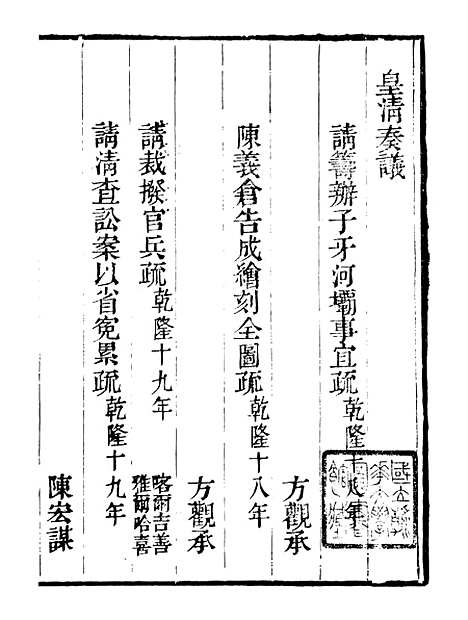 皇清奏議
請籌辦子牙河壩事宜疏乾隆十八年
方觀承
陳義倉告成繪刻全圖疏乾隆十八年
方觀承
請裁撥官兵疏乾隆十九年
喀爾吉善
雅爾哈善
請清查訟案以省寃累疏乾隆十九年
陳宏謀